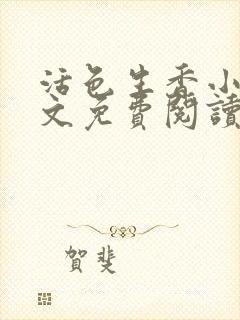 活色生香小
文免費閱讀
賀斐